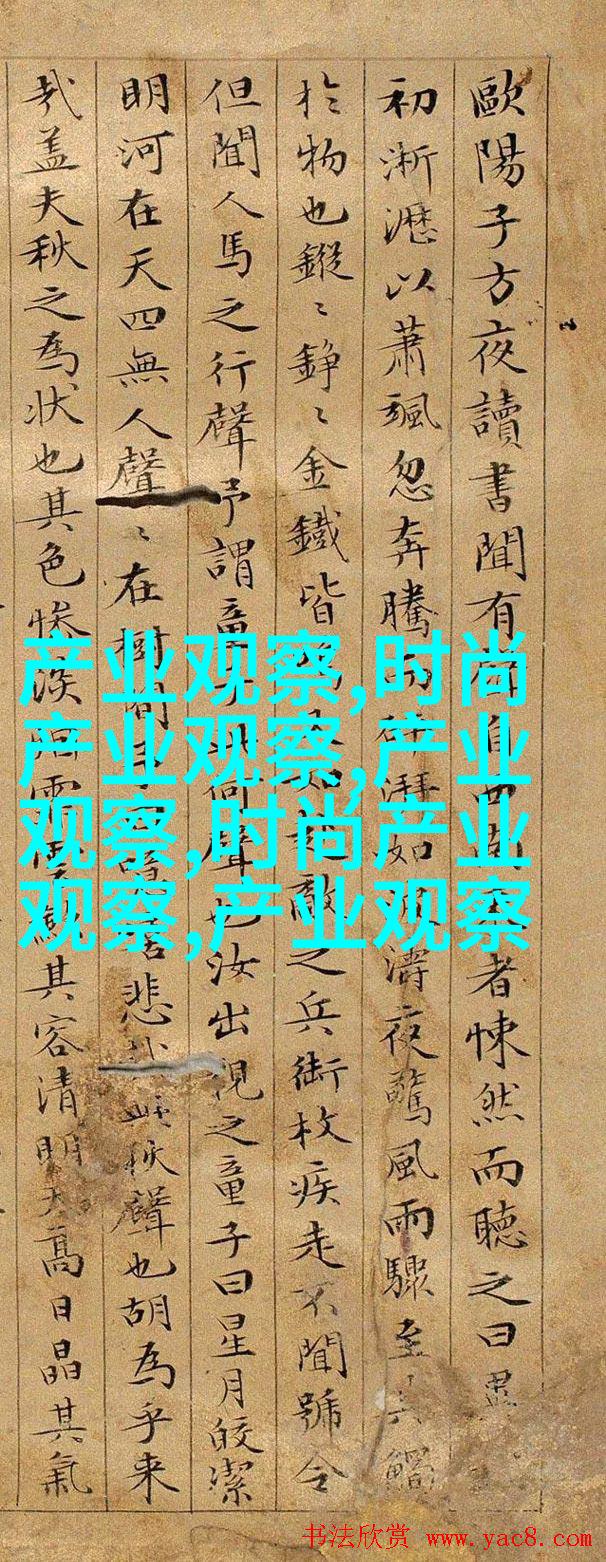 歐陽子方夜讀書聞有自者悚然而聽之曰
初淅瀝以蕭颯忽奔騰而湃如濤夜驚風雨驟至其觸
於物也鏦〻錚〻金鐵皆敵之兵銜枚疾走不聞號令
但聞人馬之行聲予謂童何聲也汝出視之童子曰星月皎潔
明河在天四無人聲〻在樹間悲秋聲也胡為乎來
哉盖夫秋之為狀也其色慘淡其容清明天高日晶其氣
产业观察,时尚
产业观察,产业
观察,时尚产业
观察,产业观察
书法欣赏 www.yac8.com